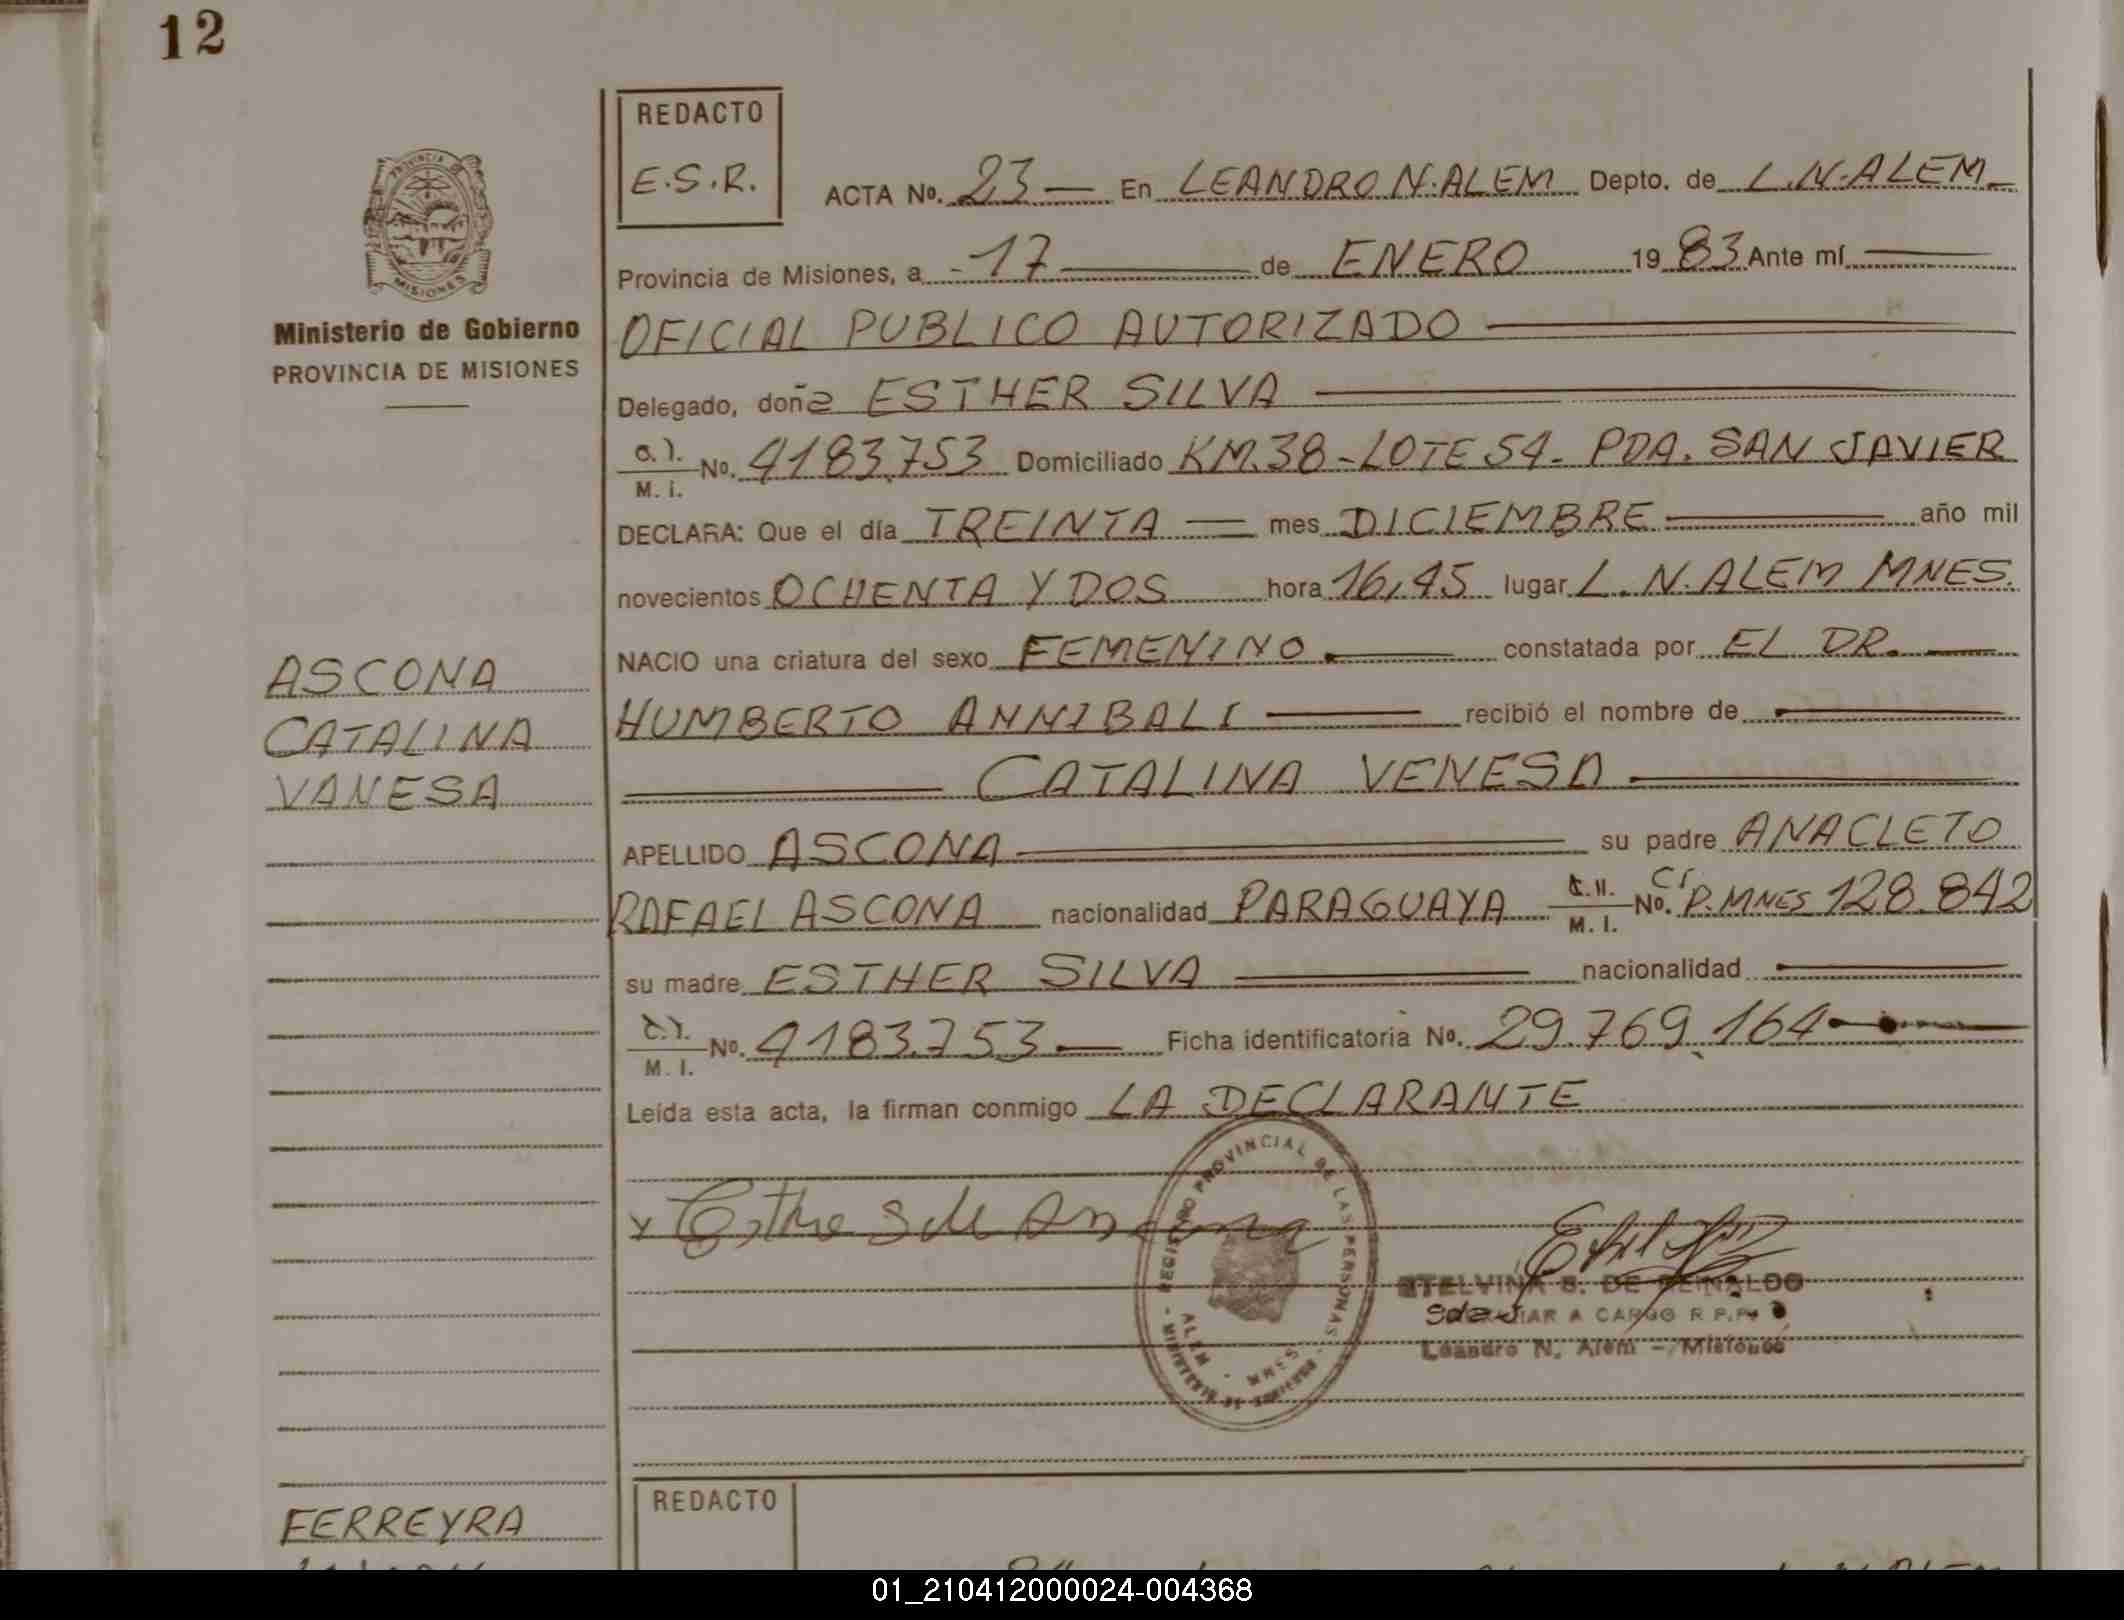 12
REDACTO
E.S.R.
ACTA No. 23 — En LEANDRO N. ALEM Depto. de L.N. ALEM
PROVINCIA
MISIONES
Provincia de Misiones, a - 17 — de ENERO 1983 Ante mí —
Ministerio de Gobierno
PROVINCIA DE MISIONES
OFICIAL PUBLICO AUTORIZADO —
Delegado, doña ESTHER SILVA —
C. I.
M. I. No. 4183.753 Domiciliado KM.38 - LOTE 54 - PDA. SAN JAVIER
DECLARA: Que el día TREINTA — mes DICIEMBRE — año mil
novecientos OCHENTA Y DOS hora 16,45 lugar L. N. ALEM MNES.
NACIO una criatura del sexo FEMENINO. — constatada por EL DR. —
ASCONA
CATALINA
VANESA
HUMBERTO ANNIBALI — recibió el nombre de —
— CATALINA VENESA —
APELLIDO ASCONA — su padre ANACLETO
RAFAEL ASCONA nacionalidad PARAGUAYA M. I. No. CI P. MNES 128.842
su madre ESTHER SILVA — nacionalidad —
C. I.
M. I. No. 4183.753 — Ficha identificatoria No. 29.769.164 —
Leída esta acta, la firman conmigo LA DECLARANTE
REGISTRO PROVINCIAL DE LAS PERSONAS
ALEM - MNES
x Esther S de Ascona
ETELVINA S. DE REINALDO
A CARGO R.P.P.
Leandro N. Alem - Misiones
FERREYRA
REDACTO
01_210412000024-004368